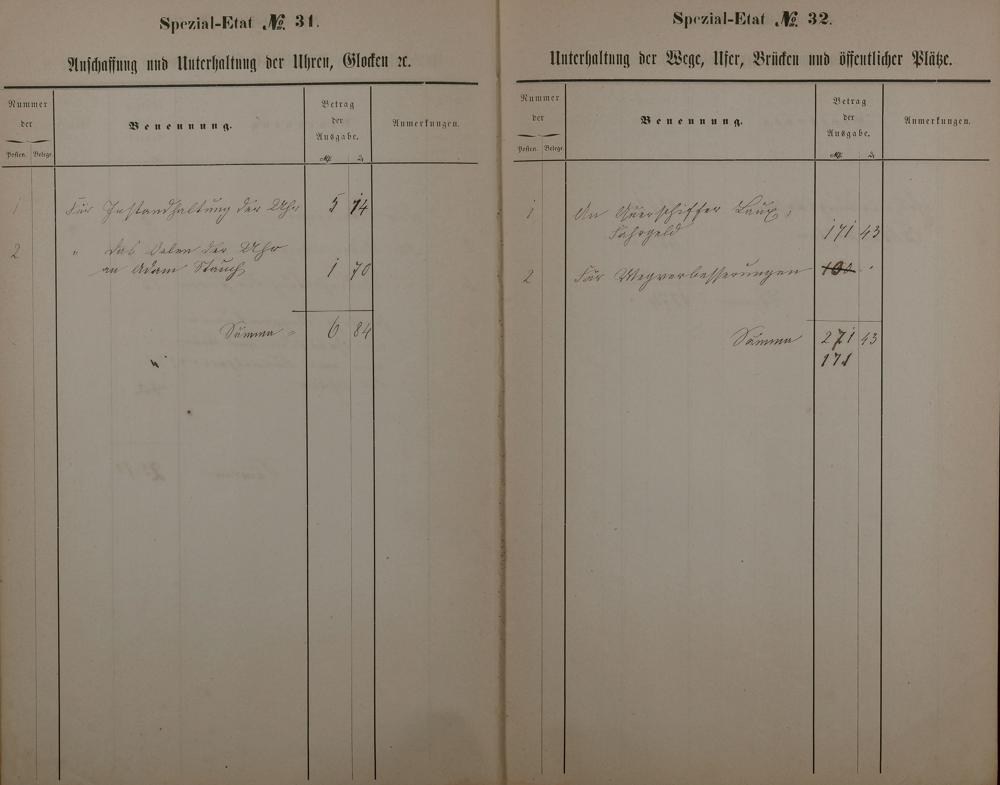 Spezial-Etat № 31.
Anschaffung und Unterhaltung der Uhren, Glocken ꝛc.
Nummer der
Posten. Belege.
Benennung.
Betrag der Ausgabe.
ℳ ₰
Anmerkungen.
1 Für Instandhaltung der Uhr 5 14
2 " das Oelen der Uhr
an Adam Stauch 1 70
Summa = 6 84
Spezial-Etat № 32.
Unterhaltung der Wege, Ufer, Brücken und öffentlicher Plätze.
Nummer der
Posten. Belege.
Benennung.
Betrag der Ausgabe.
ℳ ₰
Anmerkungen.
1 An Querschiffer Laux,
Fahrgeld 171 43
2 Für Wegverbesserungen 100 "
Summa 271 43
171